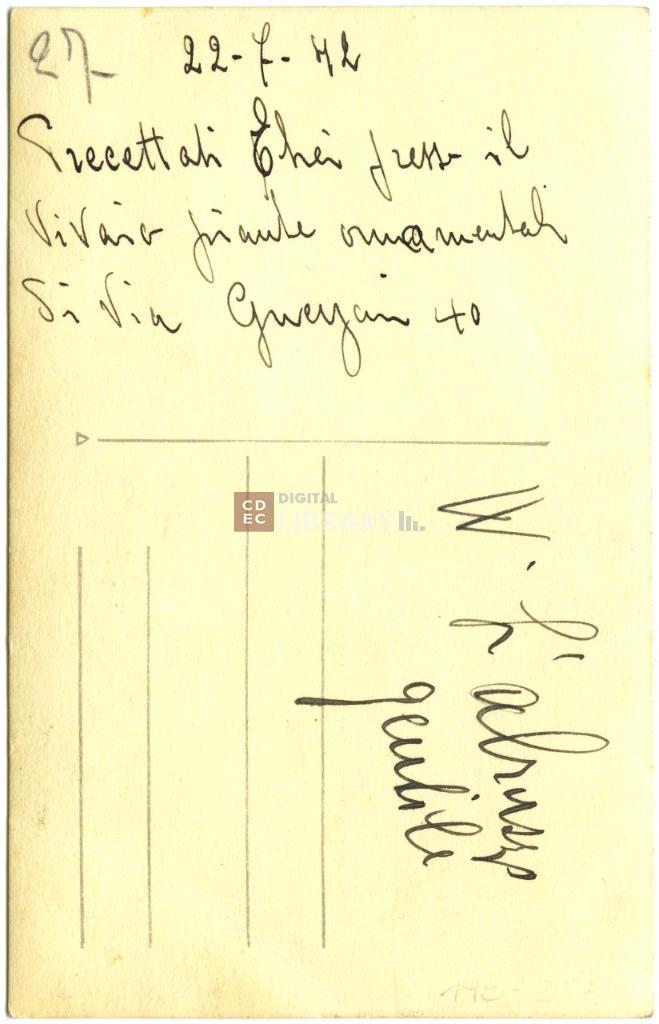 27
22-7-42
Precettati Ebrei presso il
Vivaio piante ornamentali
di Via Guerzoni 40
CD
EC
DIGITAL
LIBRARY
W. L'abruzzo
gentile